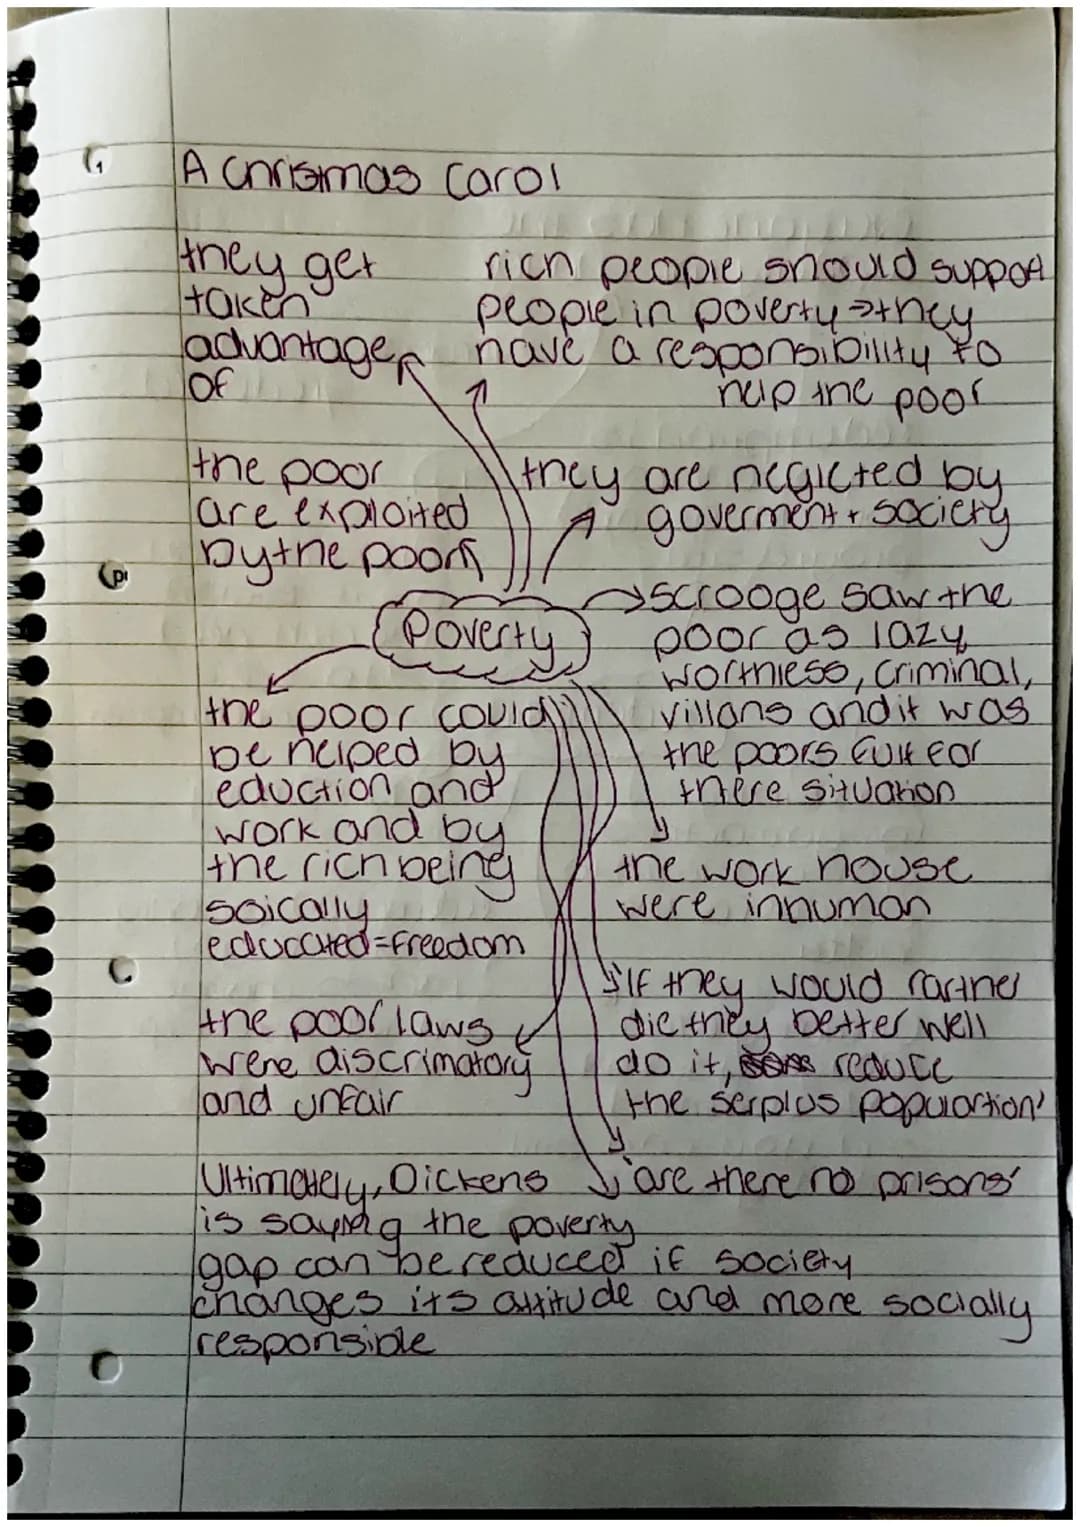 A Christmas Carol
they get
taken
advantage
of
rich people should support
people in poverty → they
have a responsibillity to
help the poor
the poor
are exploited
by the poor
they are neglcted by
goverment + society
Poverty
scrooge saw the
poor as lazy
worthless, criminal,
villans and it was
the poors fult for
there situation
the poor could
be helped by
eduction and
work and by
the rich being
soically
educated = freedom
the work house
were inhuman
the poor laws
were discrimatory
and unfair
'If they would rarther
die they better well
do it, reduce
the serplus populartion'
'are there no prisons'
Ultimately, Dickens
is saying the poverty
gap can be reduced if society
changes its attitude and more socially
responsible